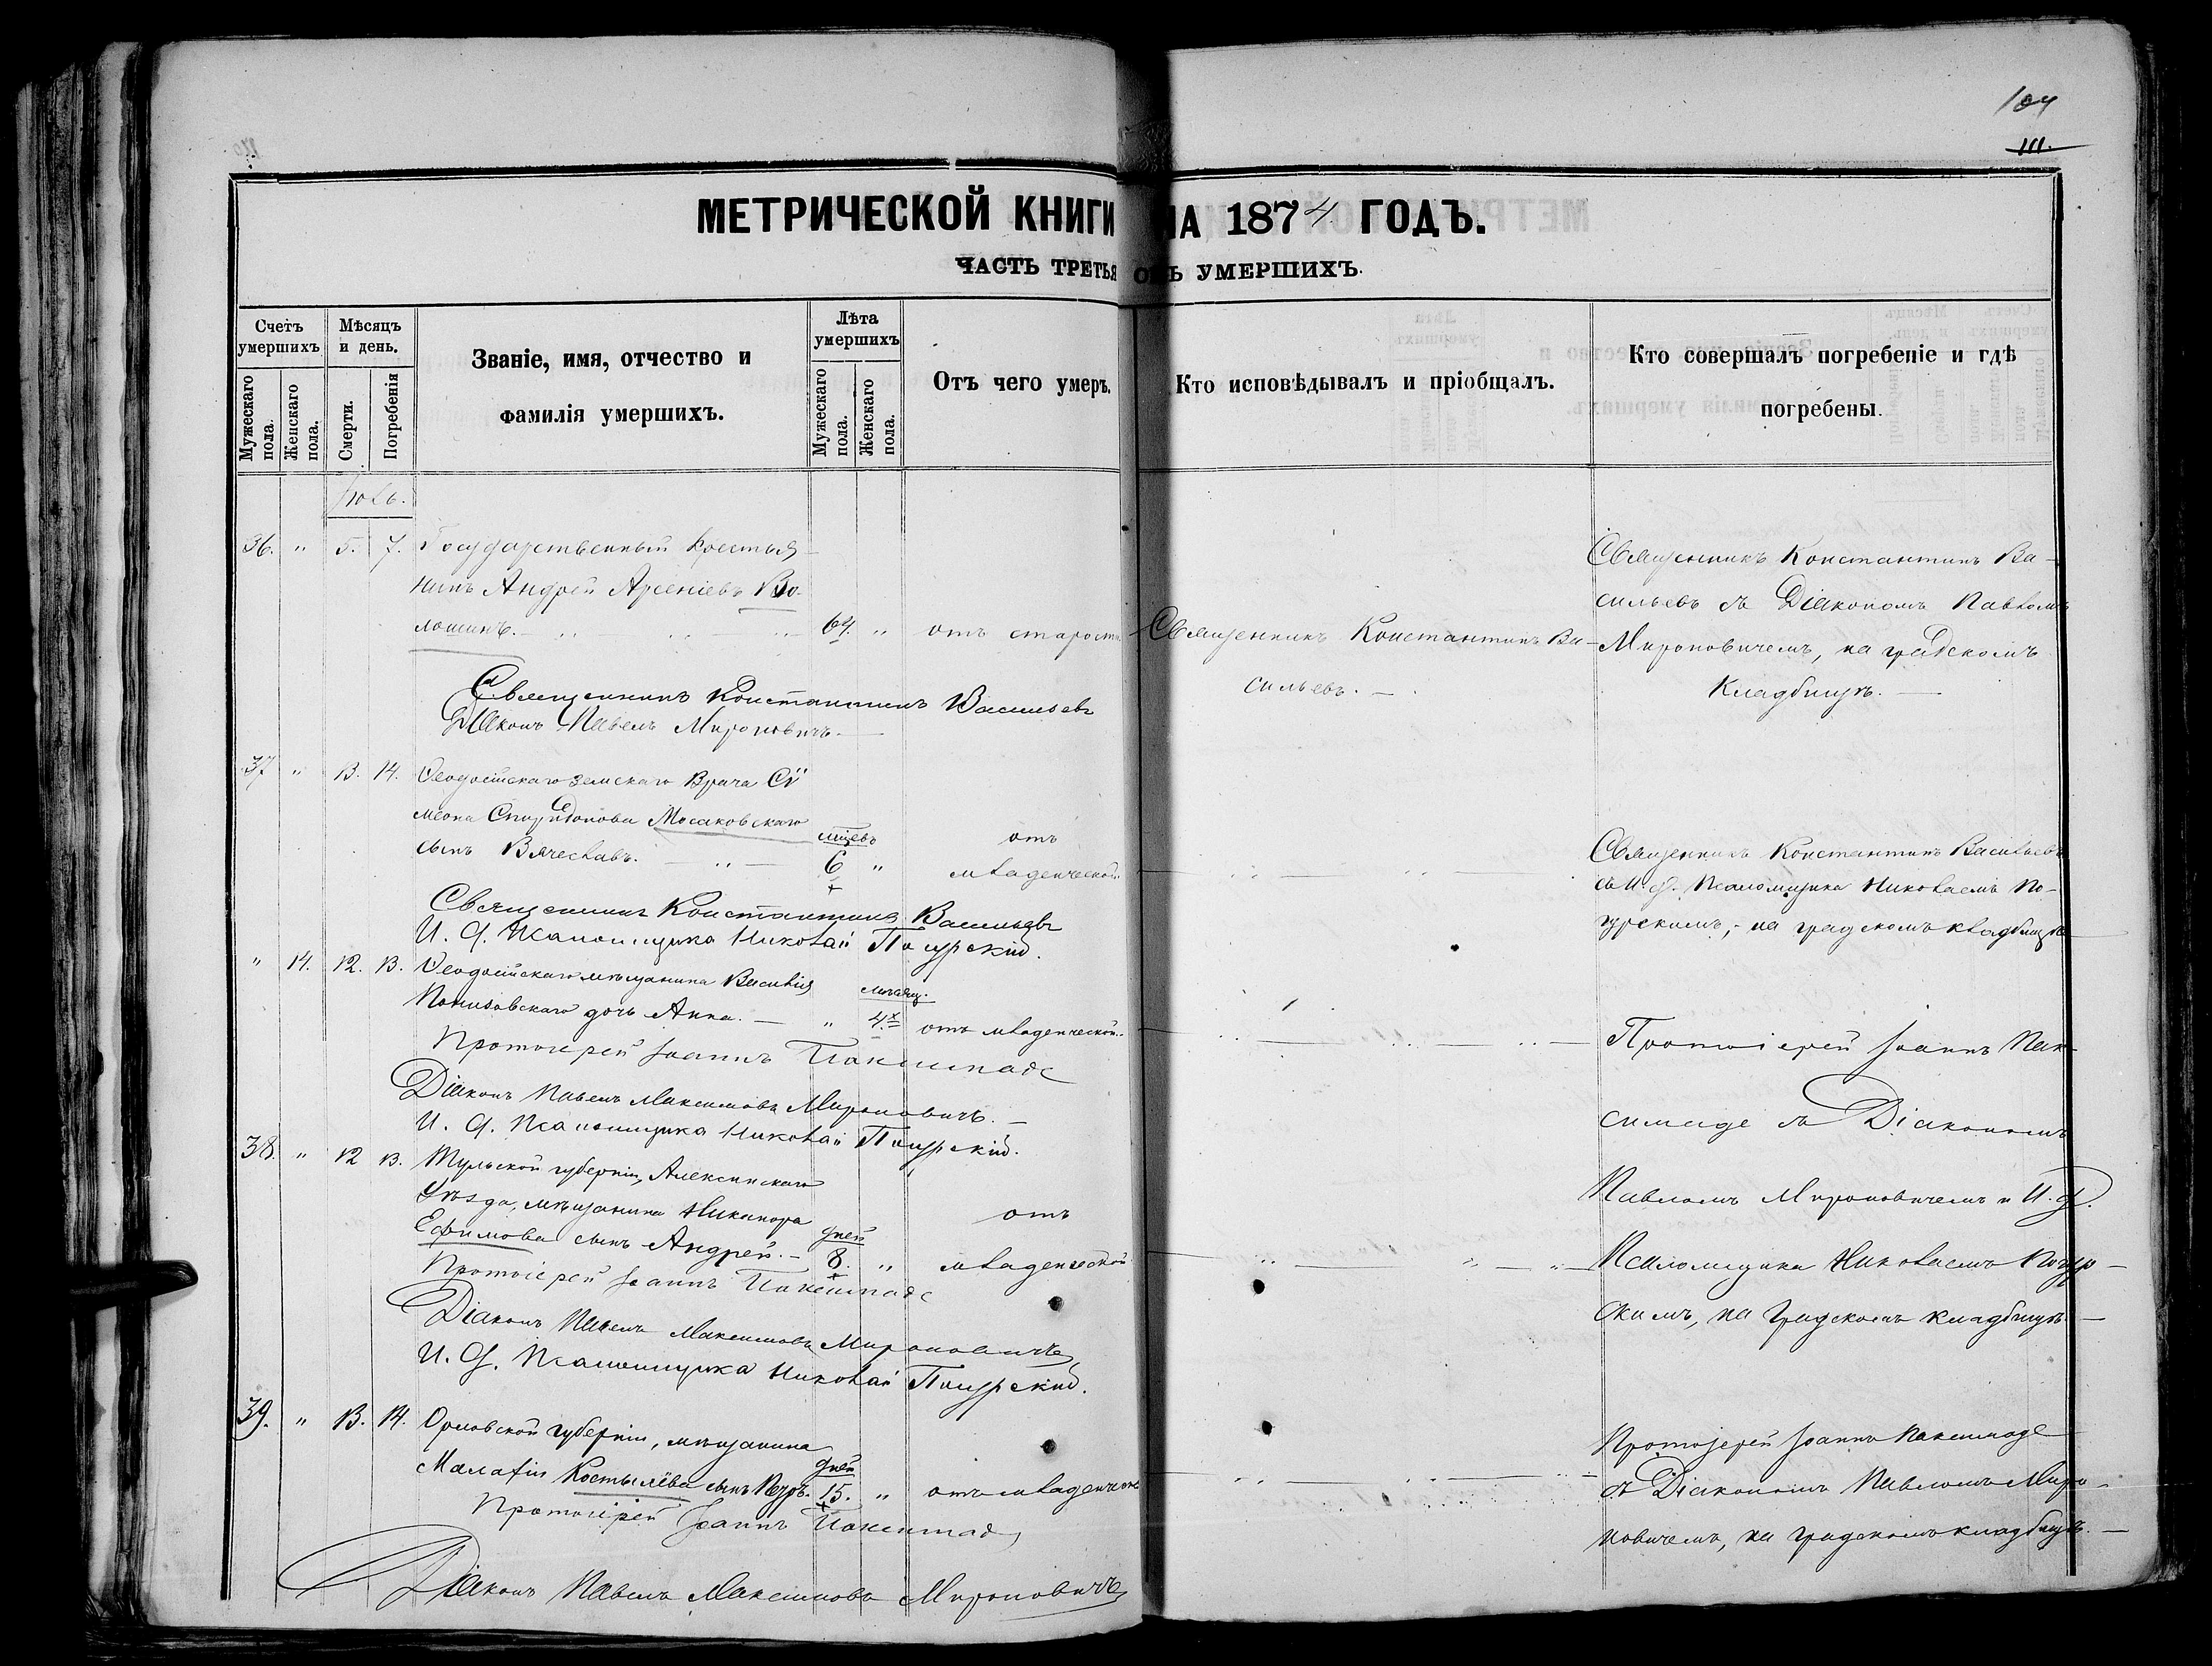 104
111.
МЕТРИЧЕСКОЙ КНИГИ НА 1874 ГОДЪ.
ЧАСТЬ ТРЕТЬЯ О УМЕРШИХЪ.
Счетъ умершихъ.
Мужескаго пола.
Женскаго пола.
Мѣсяцъ и день.
Смерти.
Погребенія
Званіе, имя, отчество и
фамилія умершихъ.
Лѣта умершихъ
Мужескаго пола.
Женскаго пола.
Отъ чего умеръ.
Кто исповѣдывалъ и пріобщалъ.
Кто совершалъ погребеніе и гдѣ
погребены.
36. " 5. 7. Государственный крестья
нинъ Андрей Арсеніевъ Во-
лошинъ. 64. " отъ старости
Священникъ Константинъ Ва-
сильевъ.
Священникъ Константинъ Ва-
сильевъ съ Діакономъ Павломъ
Мироновичемъ, на градскомъ
кладбищѣ.
Священникъ Константинъ Васильевъ
Діаконъ Павелъ Мироновичъ.
37 " 13. 14. Ѳеодосійскаго земскаго Врача Сѵ
меона Спиридонова Мосаковскаго
сынъ Вячеславъ. мѣцевъ 6 " отъ
младенческой
Священникъ Константинъ Васильевъ
съ И. Д. Псаломщика Николаемъ По-
гурскимъ, на градскомъ кладбищѣ
Священникъ Константинъ Васильевъ
И. Д. Псаломщика Николай Погурскій.
" 14. 12. 13. Ѳеодосійскаго мѣщанина Василія
дочь Анна. " мѣсяц. 4. отъ младенческой
Протоіерей Іоаннъ Пак-
симаде съ Діакономъ
Павломъ Мироновичемъ и И. Д.
Псаломщика Николаемъ Погур-
скимъ, на градскомъ кладбищѣ
Протоіерей Іоаннъ Паксимаде
Діаконъ Павелъ Максимовъ Мироновичъ.
И. Д. Псаломщика Николай Погурскій.
38. " 12 13. Тульской губерніи, Алексинскаго
Уѣзда, мѣщанина Никанора
Ефимова сынъ Андрей. дней 8. " отъ
младенческой
Протоіерей Іоаннъ Паксимаде
Діаконъ Павелъ Максимовъ Мироновичъ
И. Д. Псаломщика Николай Погурскій.
39. " 13. 14. Орловской губерніи, мѣщанина
Малафія Костылёва сынъ Петръ. дней 15. " отъ младенческой
Протоіерей Іоаннъ Паксимаде
съ Діакономъ Павломъ Миро-
новичемъ, на градскомъ кладбищѣ.
Протоіерей Іоаннъ Паксимаде
Діаконъ Павелъ Максимовъ Мироновичъ